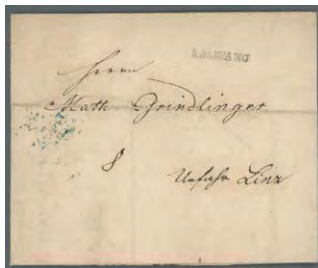 KALWANG
Herrn
Math. Grindlinger
8
Urfahr Linz